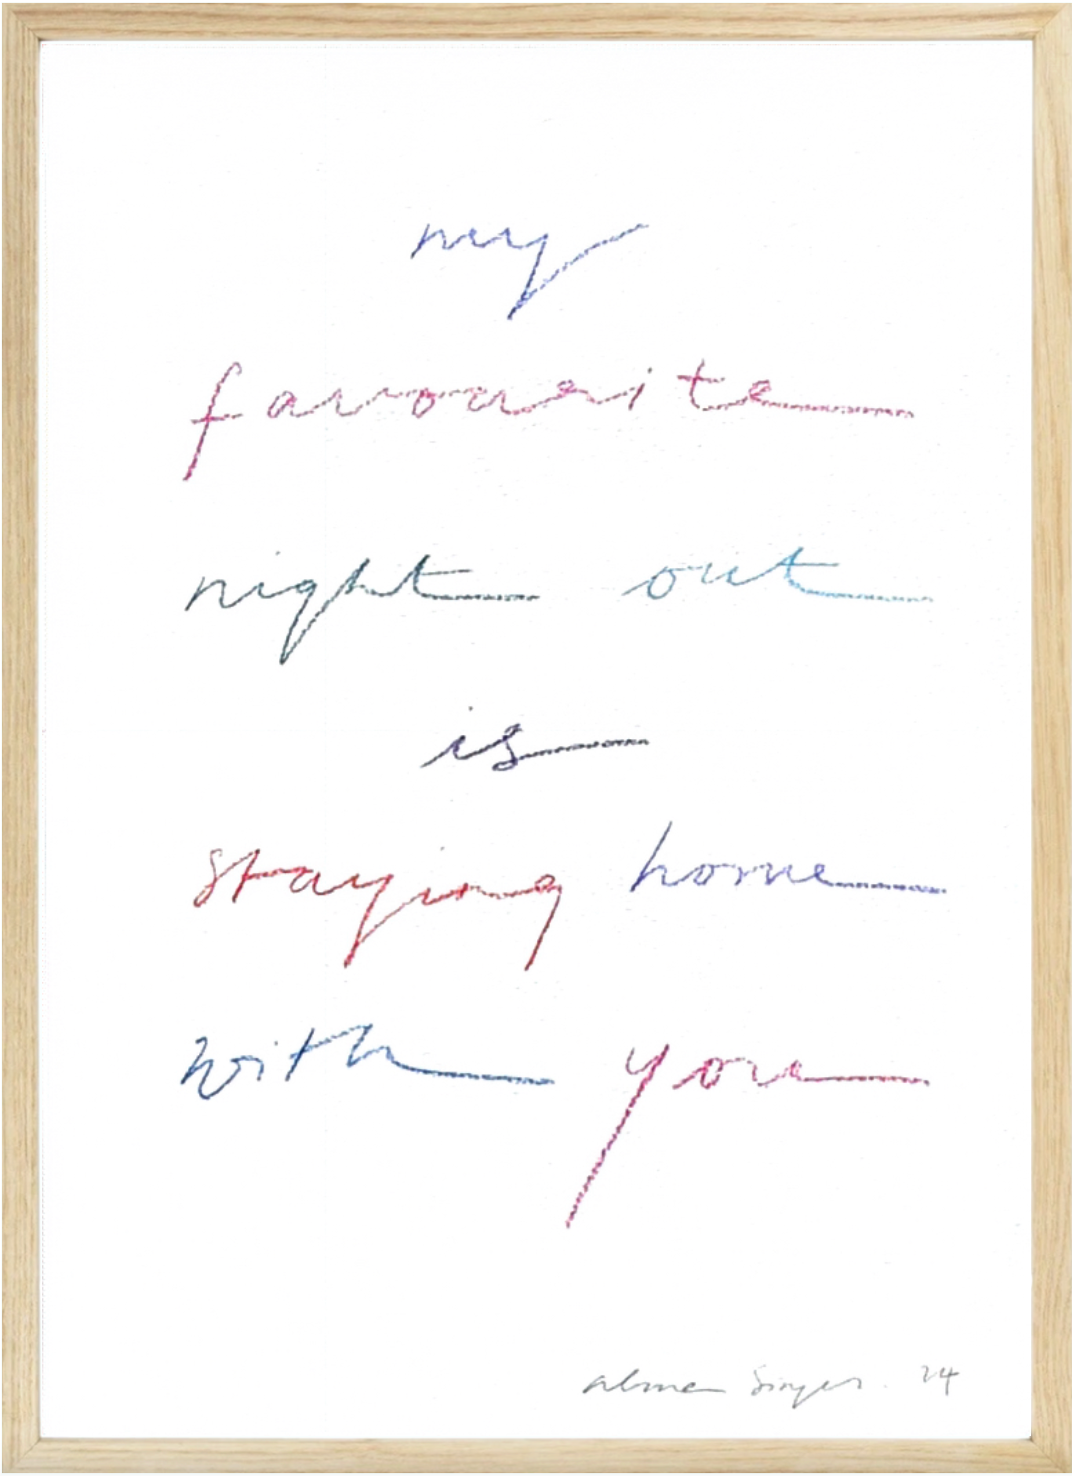 my
favourite
night out
is
staying home
with you
24